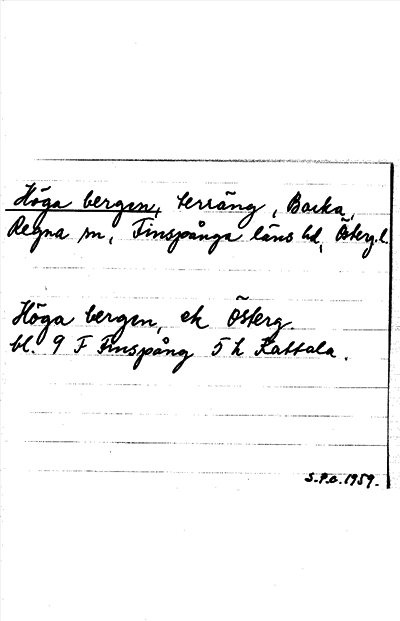 Höga bergen, terräng, Backa,
Regna sn, Finspånga läns hd, Österg.l.
Höga bergen, ek Österg.
bl. 9 F Finspång 5 h Kattala.
S.P.O. 1959.